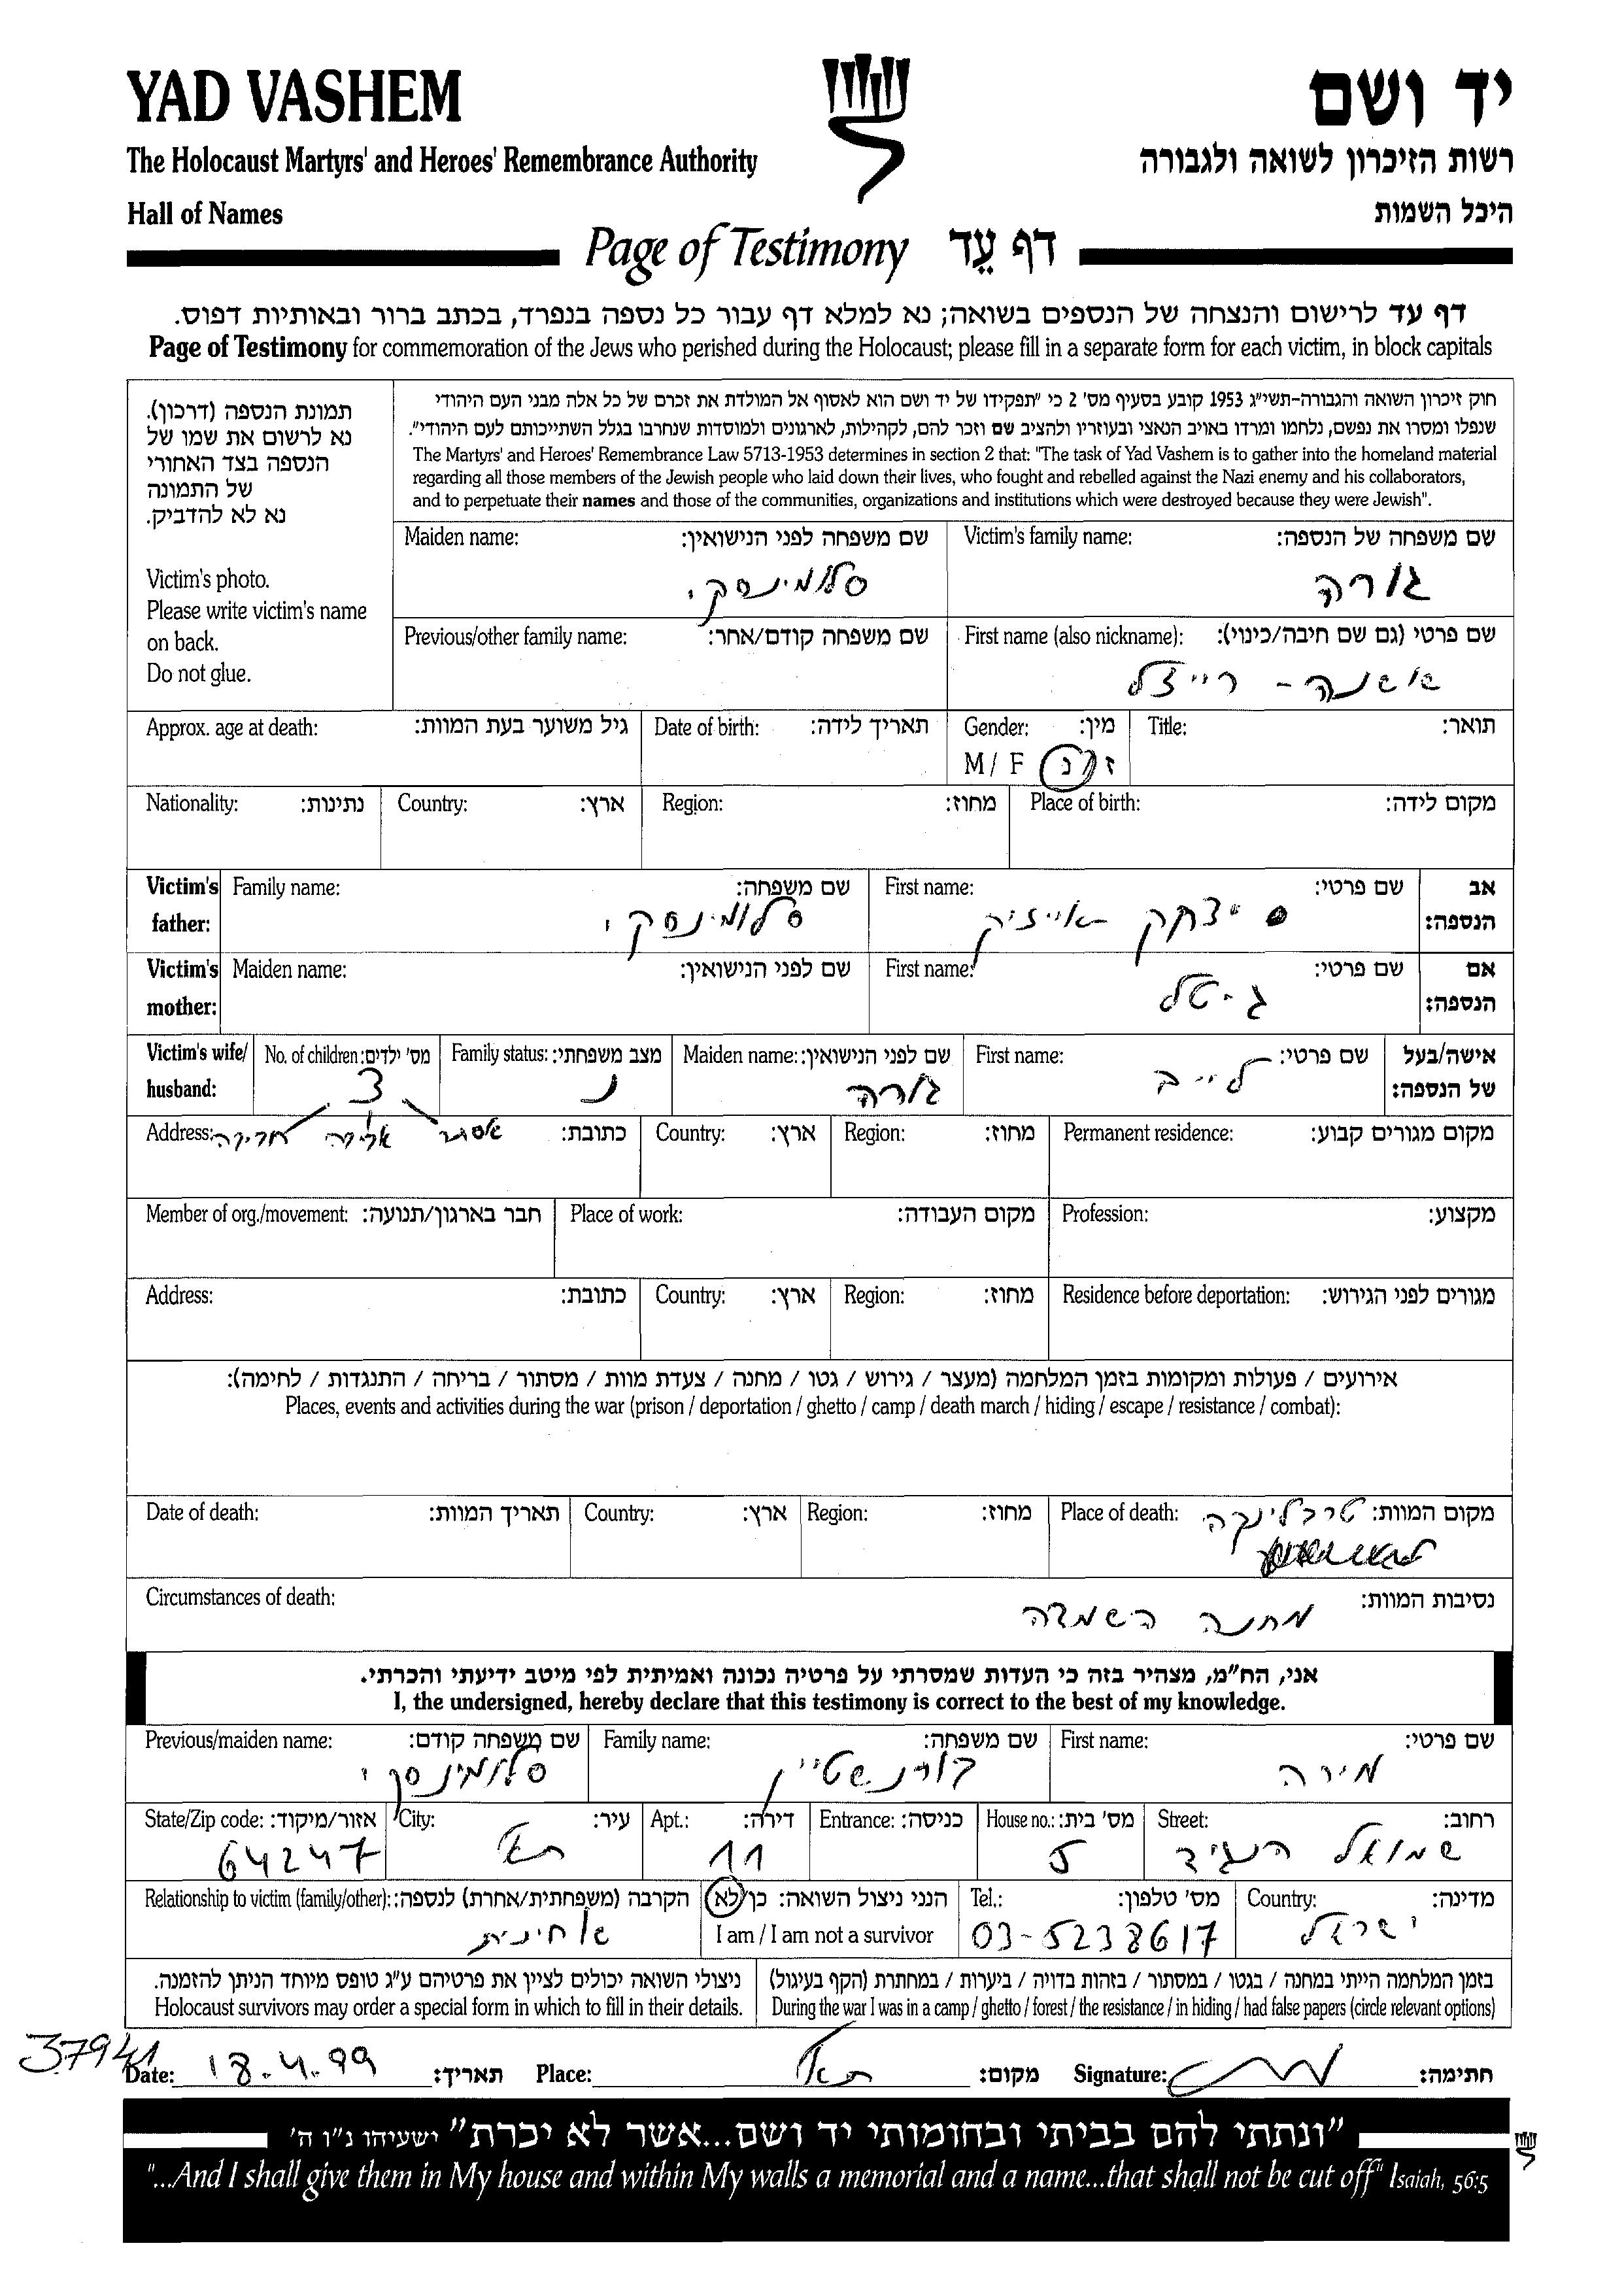 YAD VASHEM
יד ושם
The Holocaust Martyrs' and Heroes' Remembrance Authority
רשות הזיכרון לשואה ולגבורה
Hall of Names
היכל השמות
Page of Testimony דף עֵד
דף עד לרישום והנצחה של הנספים בשואה; נא למלא דף עבור כל נספה בנפרד, בכתב ברור ובאותיות דפוס.
Page of Testimony for commemoration of the Jews who perished during the Holocaust; please fill in a separate form for each victim, in block capitals
תמונת הנספה (דרכון).
נא לרשום את שמו של
הנספה בצד האחורי
של התמונה
נא לא להדביק.
Victim's photo.
Please write victim's name
on back.
Do not glue.
חוק זיכרון השואה והגבורה-תשי"ג 1953 קובע בסעיף מס' 2 כי "תפקידו של יד ושם הוא לאסוף אל המולדת את זכרם של כל אלה מבני העם היהודי
שנפלו ומסרו את נפשם, נלחמו ומרדו באויב הנאצי ובעוזריו ולהציב שם וזכר להם, לקהילות, לארגונים ולמוסדות שנחרבו בגלל השתייכותם לעם היהודי".
The Martyrs' and Heroes' Remembrance Law 5713-1953 determines in section 2 that: "The task of Yad Vashem is to gather into the homeland material
regarding all those members of the Jewish people who laid down their lives, who fought and rebelled against the Nazi enemy and his collaborators,
and to perpetuate their names and those of the communities, organizations and institutions which were destroyed because they were Jewish".
Maiden name: שם משפחה לפני הנישואין: Victim's family name: שם משפחה של הנספה:
סלומינסקי גורה
Previous/other family name: שם משפחה קודם/אחר: First name (also nickname): שם פרטי (גם שם חיבה/כינוי):
שושנה - רייצל
Approx. age at death: גיל משוער בעת המוות: Date of birth: תאריך לידה: Gender: מין: Title: תואר:
M / F ז / נ
Nationality: נתינות: Country: ארץ: Region: מחוז: Place of birth: מקום לידה:
Victim's father: Family name: שם משפחה: First name: שם פרטי: אב הנספה:
סלומינסקי יצחק אייזיק
Victim's mother: Maiden name: שם לפני הנישואין: First name: שם פרטי: אם הנספה:
גיטל
Victim's wife/ husband: No. of children: מס' ילדים: Family status: מצב משפחתי: Maiden name: שם לפני הנישואין: First name: שם פרטי: אישה/בעל של הנספה:
3 נ גורה לייב
Address: כתובת: Country: ארץ: Region: מחוז: Permanent residence: מקום מגורים קבוע:
אסתר
Member of org./movement: חבר בארגון/תנועה: Place of work: מקום העבודה: Profession: מקצוע:
Address: כתובת: Country: ארץ: Region: מחוז: Residence before deportation: מגורים לפני הגירוש:
אירועים / פעולות ומקומות בזמן המלחמה (מעצר / גירוש / גטו / מחנה / צעדת מוות / מסתור / בריחה / התנגדות / לחימה):
Places, events and activities during the war (prison / deportation / ghetto / camp / death march / hiding / escape / resistance / combat):
Date of death: תאריך המוות: Country: ארץ: Region: מחוז: Place of death: מקום המוות: טרבלינקה
Circumstances of death: נסיבות המוות:
מחנה השמדה
אני, הח"מ, מצהיר בזה כי העדות שמסרתי על פרטיה נכונה ואמיתית לפי מיטב ידיעתי והכרתי.
I, the undersigned, hereby declare that this testimony is correct to the best of my knowledge.
Previous/maiden name: שם משפחה קודם: Family name: שם משפחה: First name: שם פרטי:
סלומינסקי מירה
State/Zip code: אזור/מיקוד: City: עיר: Apt.: דירה: Entrance: כניסה: House no.: מס' בית: Street: רחוב:
64247 ת"א 11 5 שמואל הנגיד
Relationship to victim (family/other): הקרבה (משפחתית/אחרת) לנספה: הנני ניצול השואה: כן/לא Tel.: מס' טלפון: Country: מדינה:
אחינית I am / I am not a survivor 03-5238617 ישראל
ניצולי השואה יכולים לציין את פרטיהם ע"ג טופס מיוחד הניתן להזמנה. בזמן המלחמה הייתי במחנה / בגטו / במסתור / בזהות בדויה / ביערות / במחתרת (הקף בעיגול)
Holocaust survivors may order a special form in which to fill in their details. During the war I was in a camp / ghetto / forest / the resistance / in hiding / had false papers (circle relevant options)
37941
Date: 18.4.99 תאריך: Place: ת"א מקום: Signature: חתימה:
"ונתתי להם בביתי ובחומותי יד ושם...אשר לא יכרת" ישעיהו נ"ו ה'
"...And I shall give them in My house and within My walls a memorial and a name...that shall not be cut off" Isaiah, 56:5